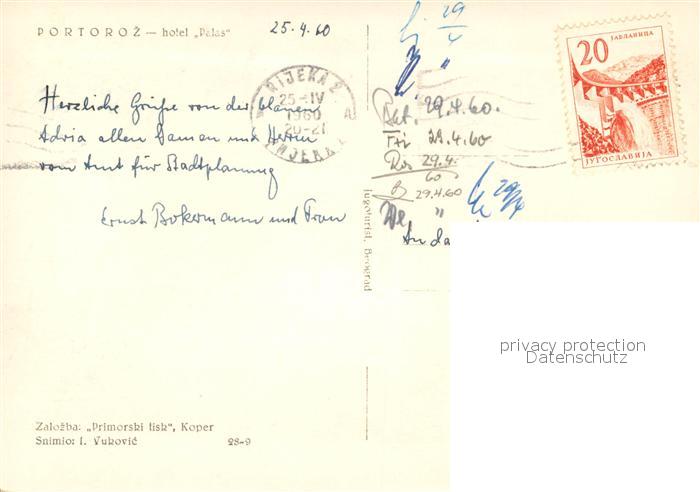 PORTOROŽ — hotel „Palas"
25.4.60
Herzliche Grüße von der blauen
Adria allen Damen und Herren
vom Amt für Stadtplanung
Ernst Bokermann und Frau
Založba: „Primorski tisk", Koper
Snimio: I. Vuković 28-9
RIJEKA 2
25-IV
1960
20-21
RIJEKA
Jugoturist, Beograd
29
4
"
29.4.60.
29.4.60
29.4.
60
29.4.60
"
29/4
An da
ЈАБЛАНИЦА
20
ЈУГОСЛАВИЈА
privacy protection
Datenschutz